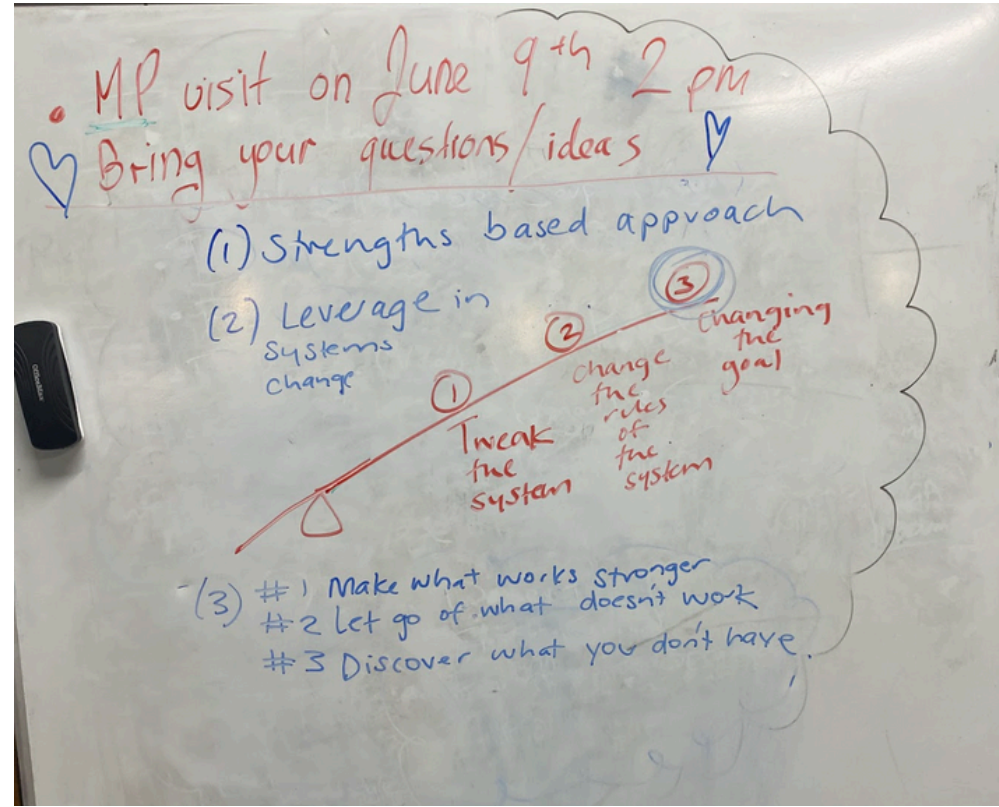 • MP visit on June 9th 2 pm
Bring your questions/ideas
(1) Strengths based approach
(2) Leverage in
systems
change
①
Tweak
the
system
②
change
the
rules
of
the
system
③
Changing
the
goal
(3) #1 Make what works stronger
#2 Let go of what doesn't work
#3 Discover what you don't have.
OfficeMax